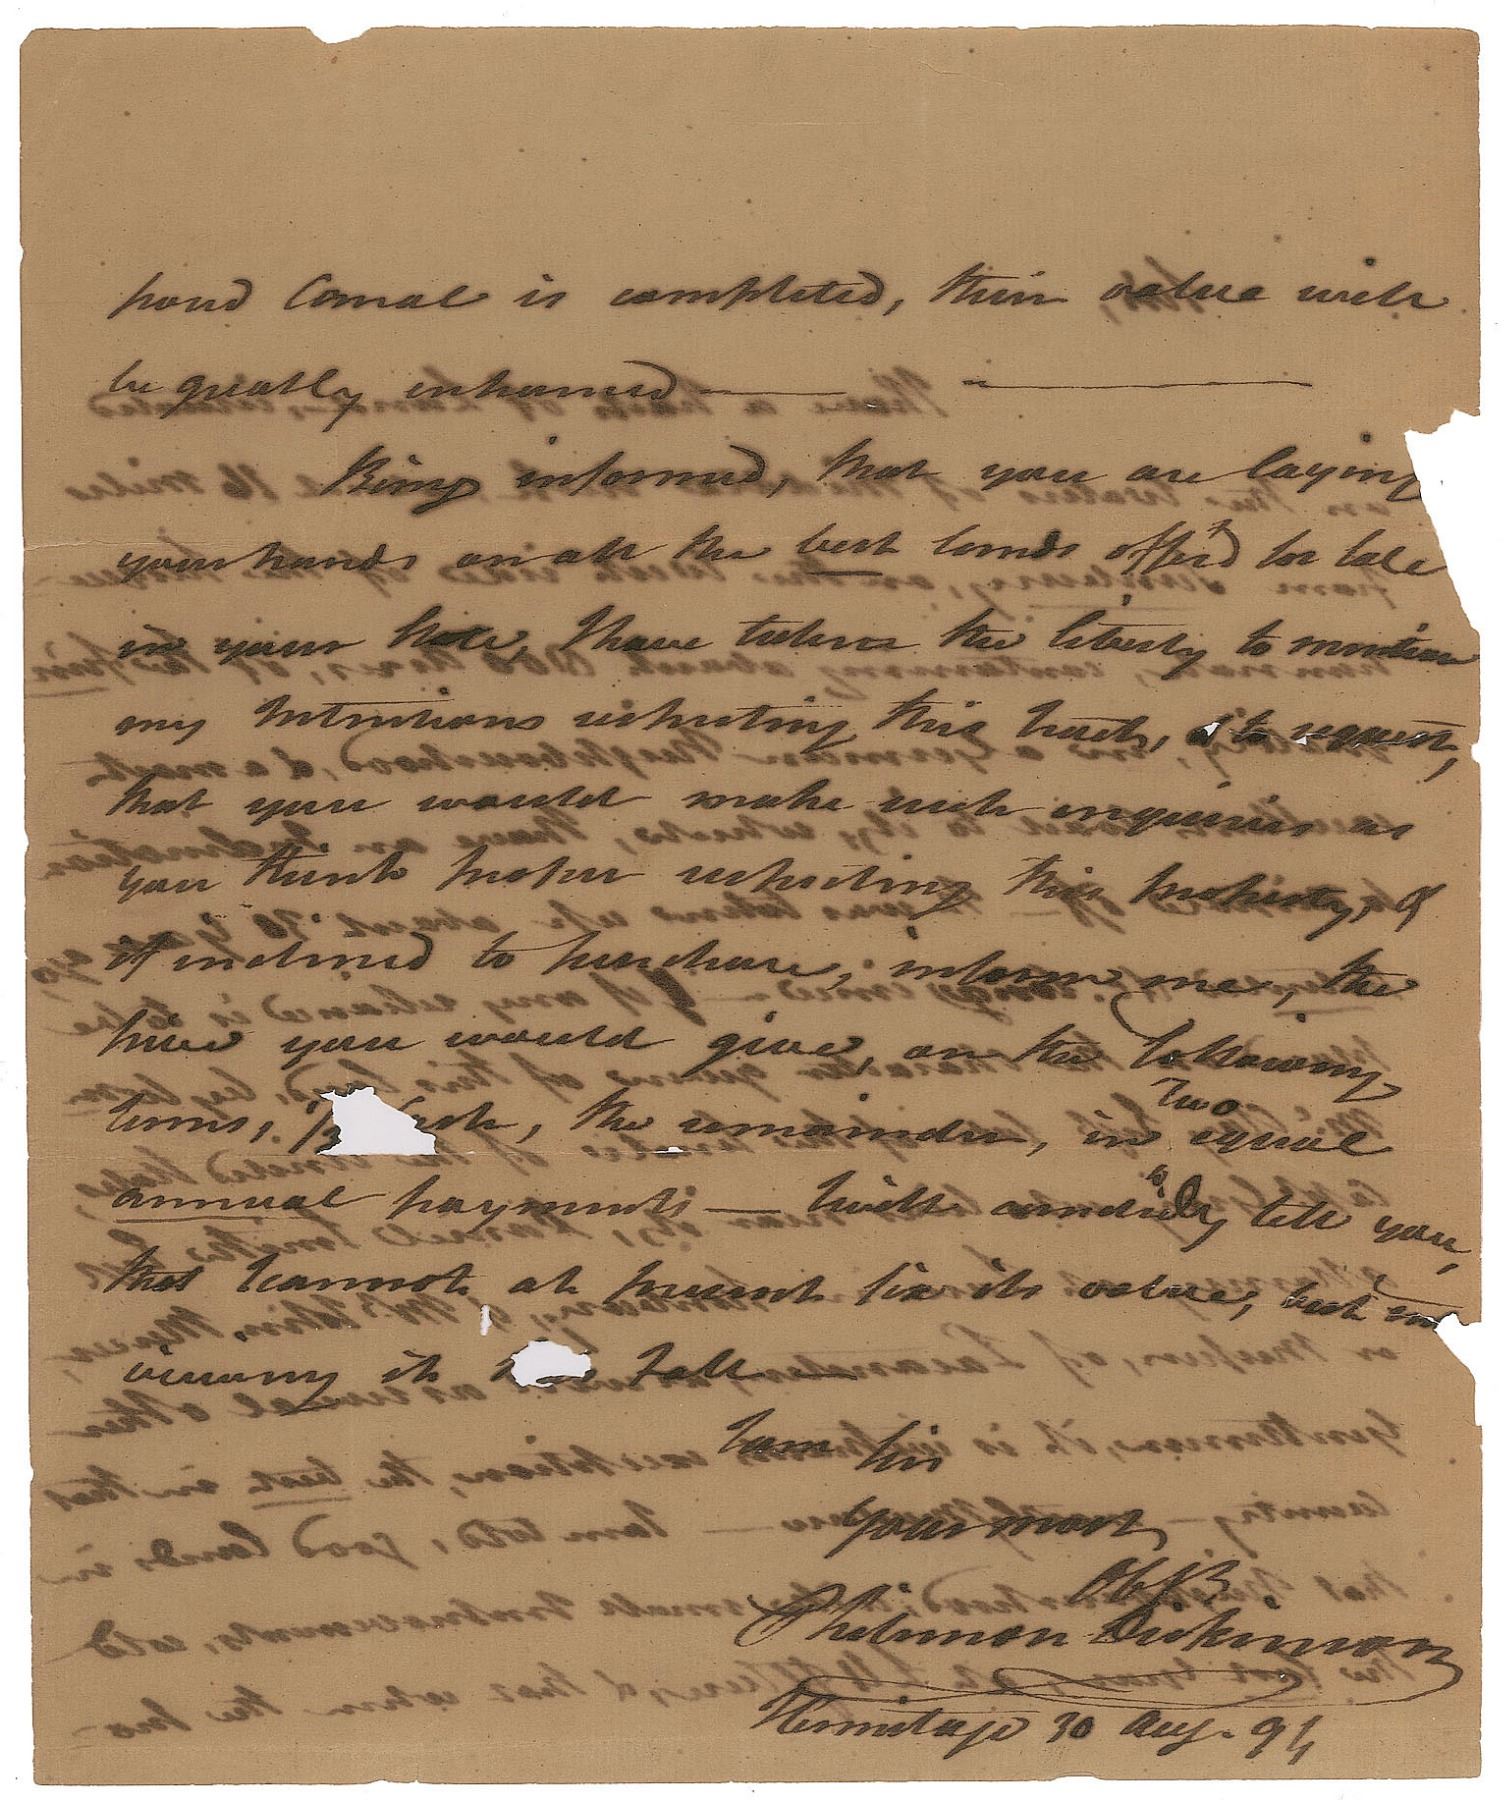 posed Canal is completed, their value will
be greatly enhanced —
Being informed, that you are laying
your hands on all the best lands offer'd for sale
in your State, I have taken the liberty to mention
my Intentions respecting this tract, & to request,
that you would make such enquiries as
you think proper respecting this property, &
if inclined to purchase, inform me, the
price you would give, on the following
terms, 1/3 Cash, the remainder, in two equal
annual payments — I will candidly tell you,
that I cannot at present fix its value, but
viewing it this Fall —
I am Sir
Your most
Obt S
Philemon Dickinson
Hermitage 30 Aug. 94